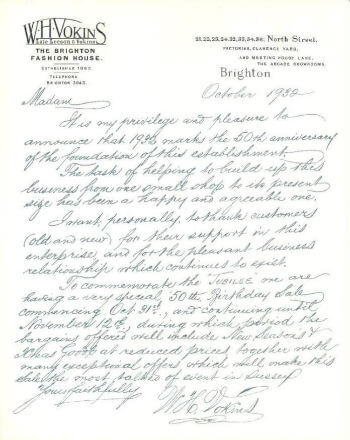 W.H.VOKINS
Late Leeson & Vokins
THE BRIGHTON
FASHION HOUSE.
ESTABLISHED 1882.
TELEPHONE
BRIGHTON 3043.
21, 22, 23, 24, 32, 33, 34, 36, North Street,
VICTORIAS, CLARENCE YARD,
AND MEETING HOUSE LANE.
THE ARCADE SHOWROOMS.
Brighton
October 1932
Madam
It is my privilege and pleasure to
announce that 1932 marks the 50th anniversary
of the foundation of this establishment.
The task of helping to build up this
business from one small shop to its present
size has been a happy and agreeable one.
I want, personally, to thank customers
(old and new) for their support in this
enterprise, and for the pleasant business
relationship which continues to exist.
To commemorate the "JUBILEE" we are
having a very special 50th Birthday Sale
commencing Oct 31st, and continuing until
November 12th, during which period the
bargains offered will include New Season's
Xmas Goods at reduced prices, together with
many exceptional offers which will make this
Sale the most talked of event in Sussex
Yours faithfully
W H Vokins